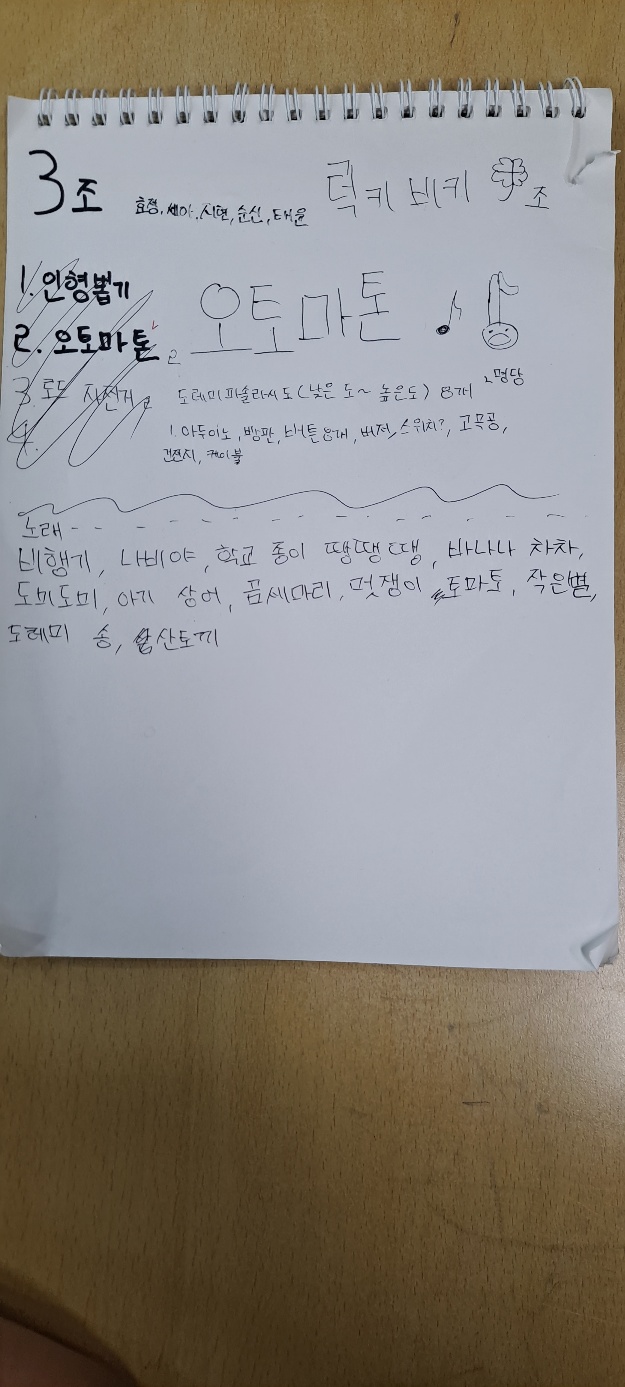 3조 효정, 세아, 지현, 순신, 태윤 럭키비키 조
1. 인형뽑기
2. 오토마톤
오토마톤
2
3. 로드 자전거
4.
도레미파솔라시도 (낮은 도~ 높은도) 8개 2명당
1. 아두이노, 빵판, 버튼 8개, 버저, 스위치?,
건전지, 케이블
노래
비행기, 나비야, 학교 종이 땡땡땡, 바나나 차차,
도미도미, 아기 상어, 곰세마리, 멋쟁이 토마토, 작은별,
도레미 송, 산토끼